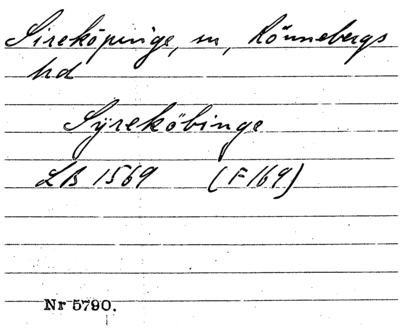 Sireköpinge, sn, Rönnebergs
hd
Syreköbinge
LB 1569 (F169)
Nr 5790.